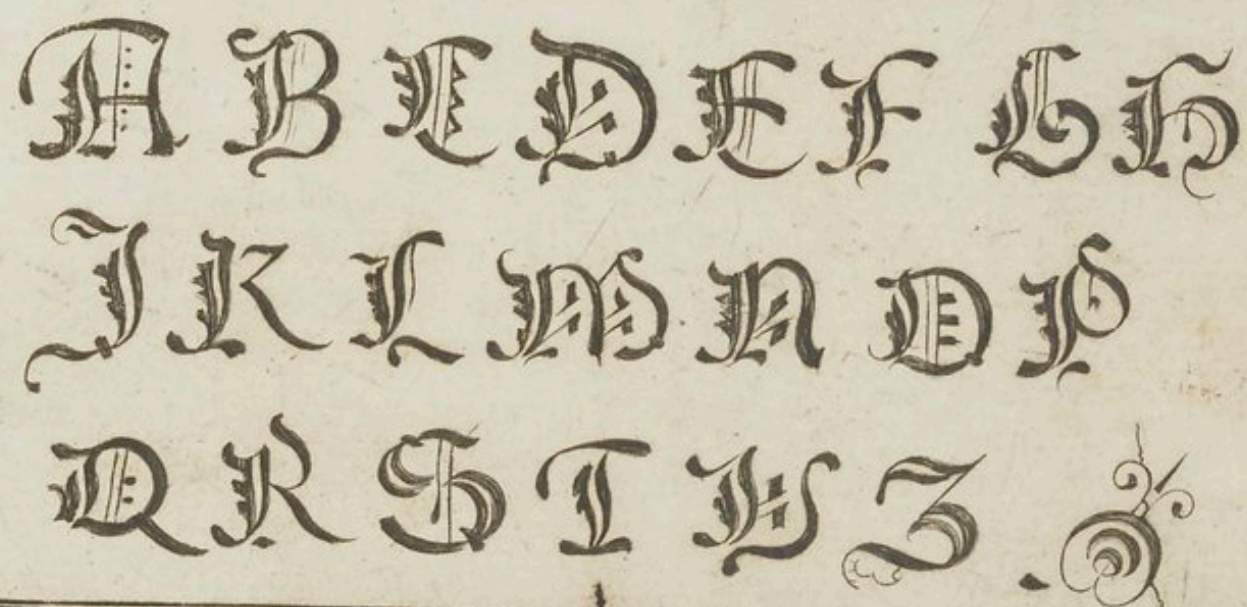 A B C D E F G H
I K L M N O P
Q R S T V Z